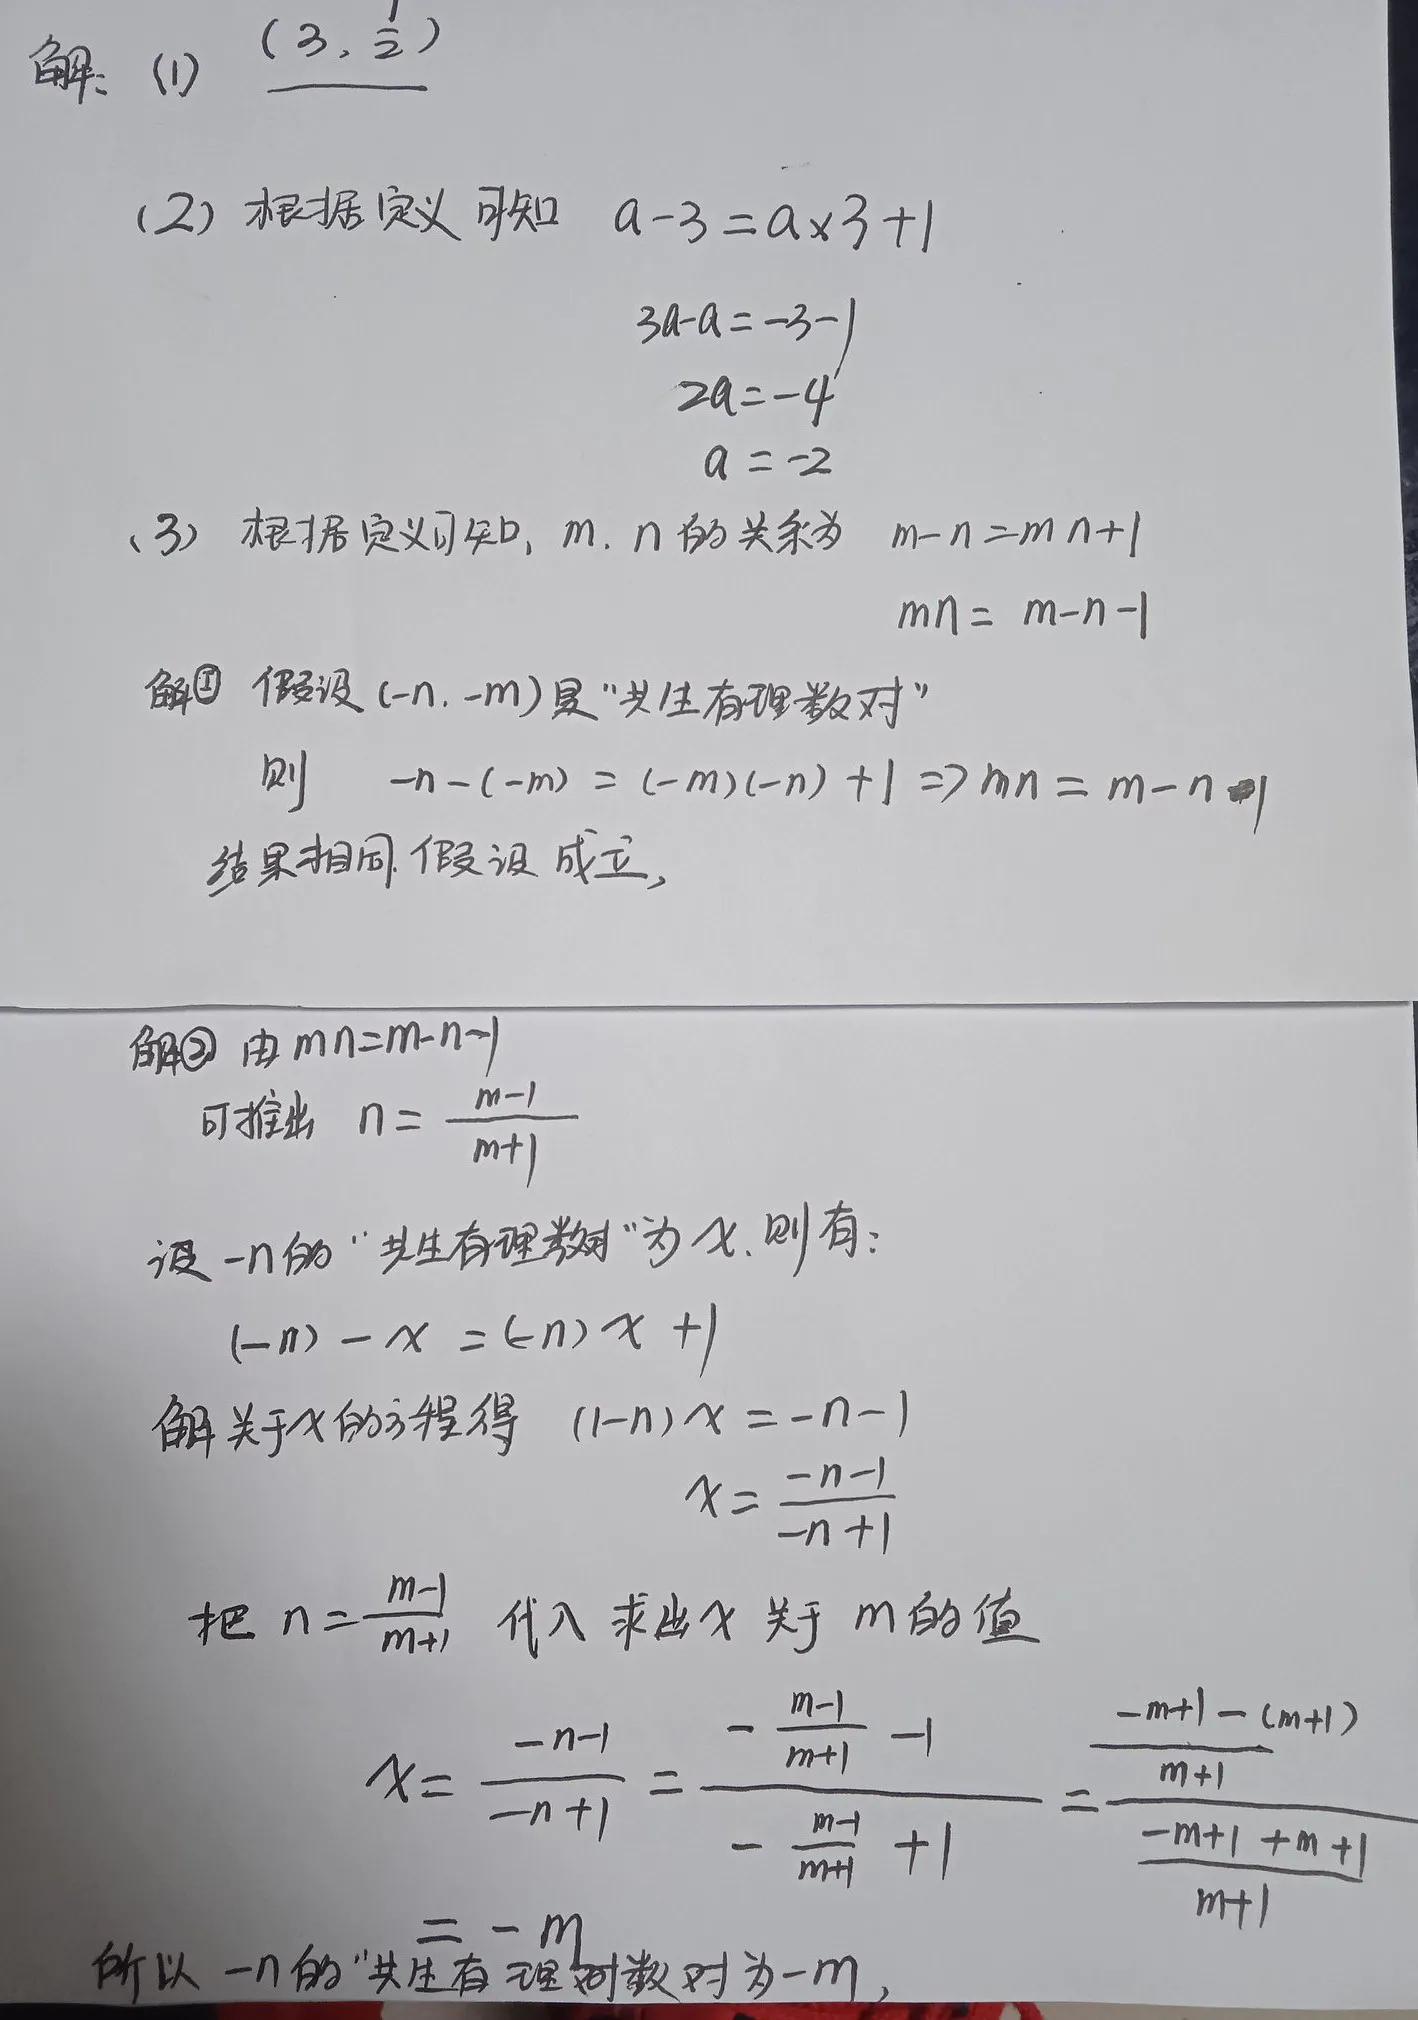 解：(1) (3, 1/2)
(2) 根据定义可知 a-3=a×3+1
3a-a=-3-1
2a=-4
a=-2
(3) 根据定义可知, m, n的关系为 m-n=mn+1
mn= m-n-1
解① 假设(-n, -m)是“共生有理数对”
则 -n-(-m) = (-m)(-n)+1 => mn = m-n-1
结果相同, 假设成立,
解② 由mn=m-n-1
可推出 n= (m-1)/(m+1)
设-n的“共生有理数对”为x, 则有:
(-n)-x=(-n)x+1
解关于x的方程得 (1-n)x=-n-1
x=(-n-1)/(-n+1)
把 n=(m-1)/(m+1) 代入求出x关于m的值
x= (-n-1)/(-n+1) = (-(m-1)/(m+1) -1)/(-(m-1)/(m+1) +1) = ((-m+1-(m+1))/(m+1))/((-m+1+m+1)/(m+1))
= -m
所以-n的“共生有理对数对为-m,